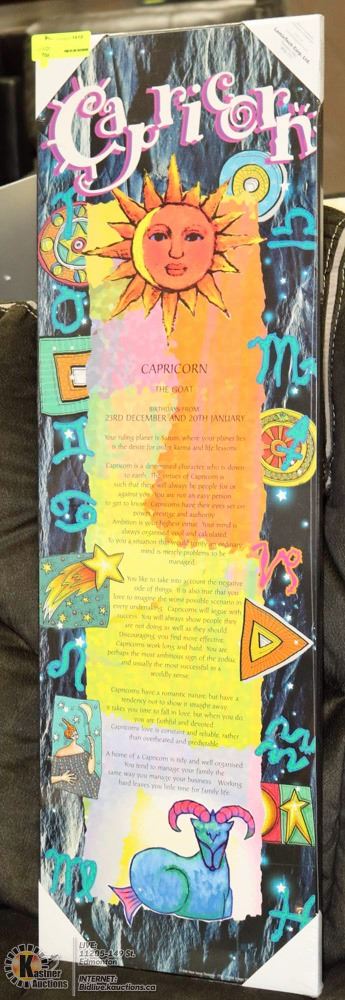 Capricorn
CAPRICORN
THE GOAT
BIRTHDAYS FROM
23RD DECEMBER AND 20TH JANUARY
Your ruling planet is Saturn, where your planet lies
is the desire for order, karma and life lessons.
Capricorn is a determined character who is down
to earth. The virtues of Capricorn is
such that there will always be people for or
against you. You are not an easy person
to get to know. Capricorns have their eyes set on
power, prestige and authority.
Ambition is your highest virtue. Your mind is
always organised, cool and calculated.
To you a situation that would terrify an ordinary
mind is merely problems to be
managed.
You like to take into account the negative
side of things. It is also true that you
love to imagine the worst possible scenario in
every undertaking. Capricorns will argue with
success. You will always show people they
are not doing as well as they should.
Discouraging, you find most effective.
Capricorns work long and hard. You are
perhaps the most ambitious sign of the zodiac
and usually the most successful in a
worldly sense.
Capricorns have a romantic nature, but have a
tendency not to show it straight away.
It takes you time to fall in love, but when you do,
you are faithful and devoted.
Capricorns love is constant and reliable, rather
than overheated and predictable.
A home of a Capricorn is tidy and well organised.
You tend to manage your family the
same way you manage your business. Working
hard leaves you little time for family life.
LIVE:
11205-149 St.
Edmonton
INTERNET:
Bidlive.kauctions.ca
Kastner
Auctions